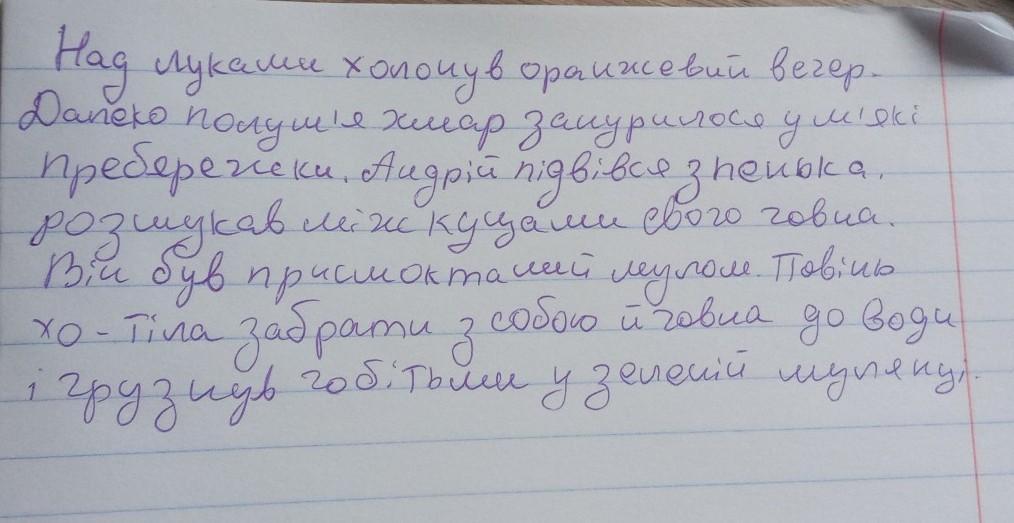 Над луками холонув оранжевий вечер.
Далеко полум'я хмар занурилося у м'які
пребережски. Андрій підвівся з пенька.
розшукав між кущами свого човна.
Він був присмокталий мулом. Повінь
хо-тіла забрати з собою й човна до води
і грузнув чобітьми у зеленій муляці.